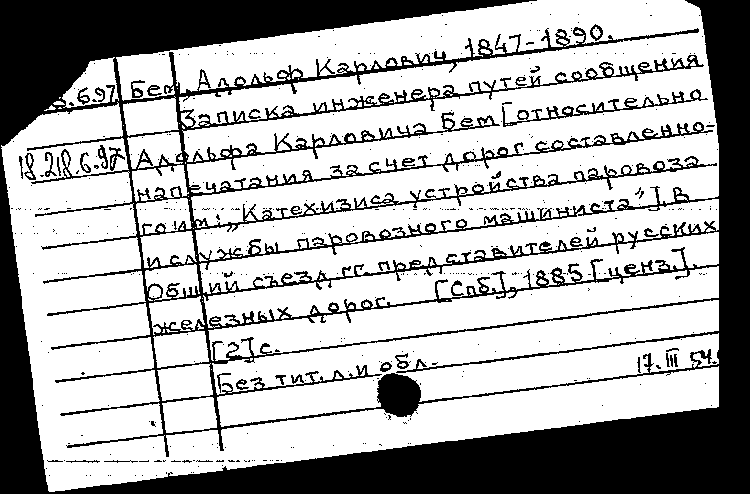 Бем, Адольф Карлович, 1847-1890.
Записка инженера путей сообщения
18.218.6.97 Адольфа Карловича Бем [относительно
напечатания за счет дорог составленно-
го им: „Катехизиса устройства паровоза
и службы паровозного машиниста"]. В
Общий съезд гг. представителей русских
железных дорог. [Спб.], 1885 [ценз.].
[2] с.
Без тит. л. и обл.
17. III 54.